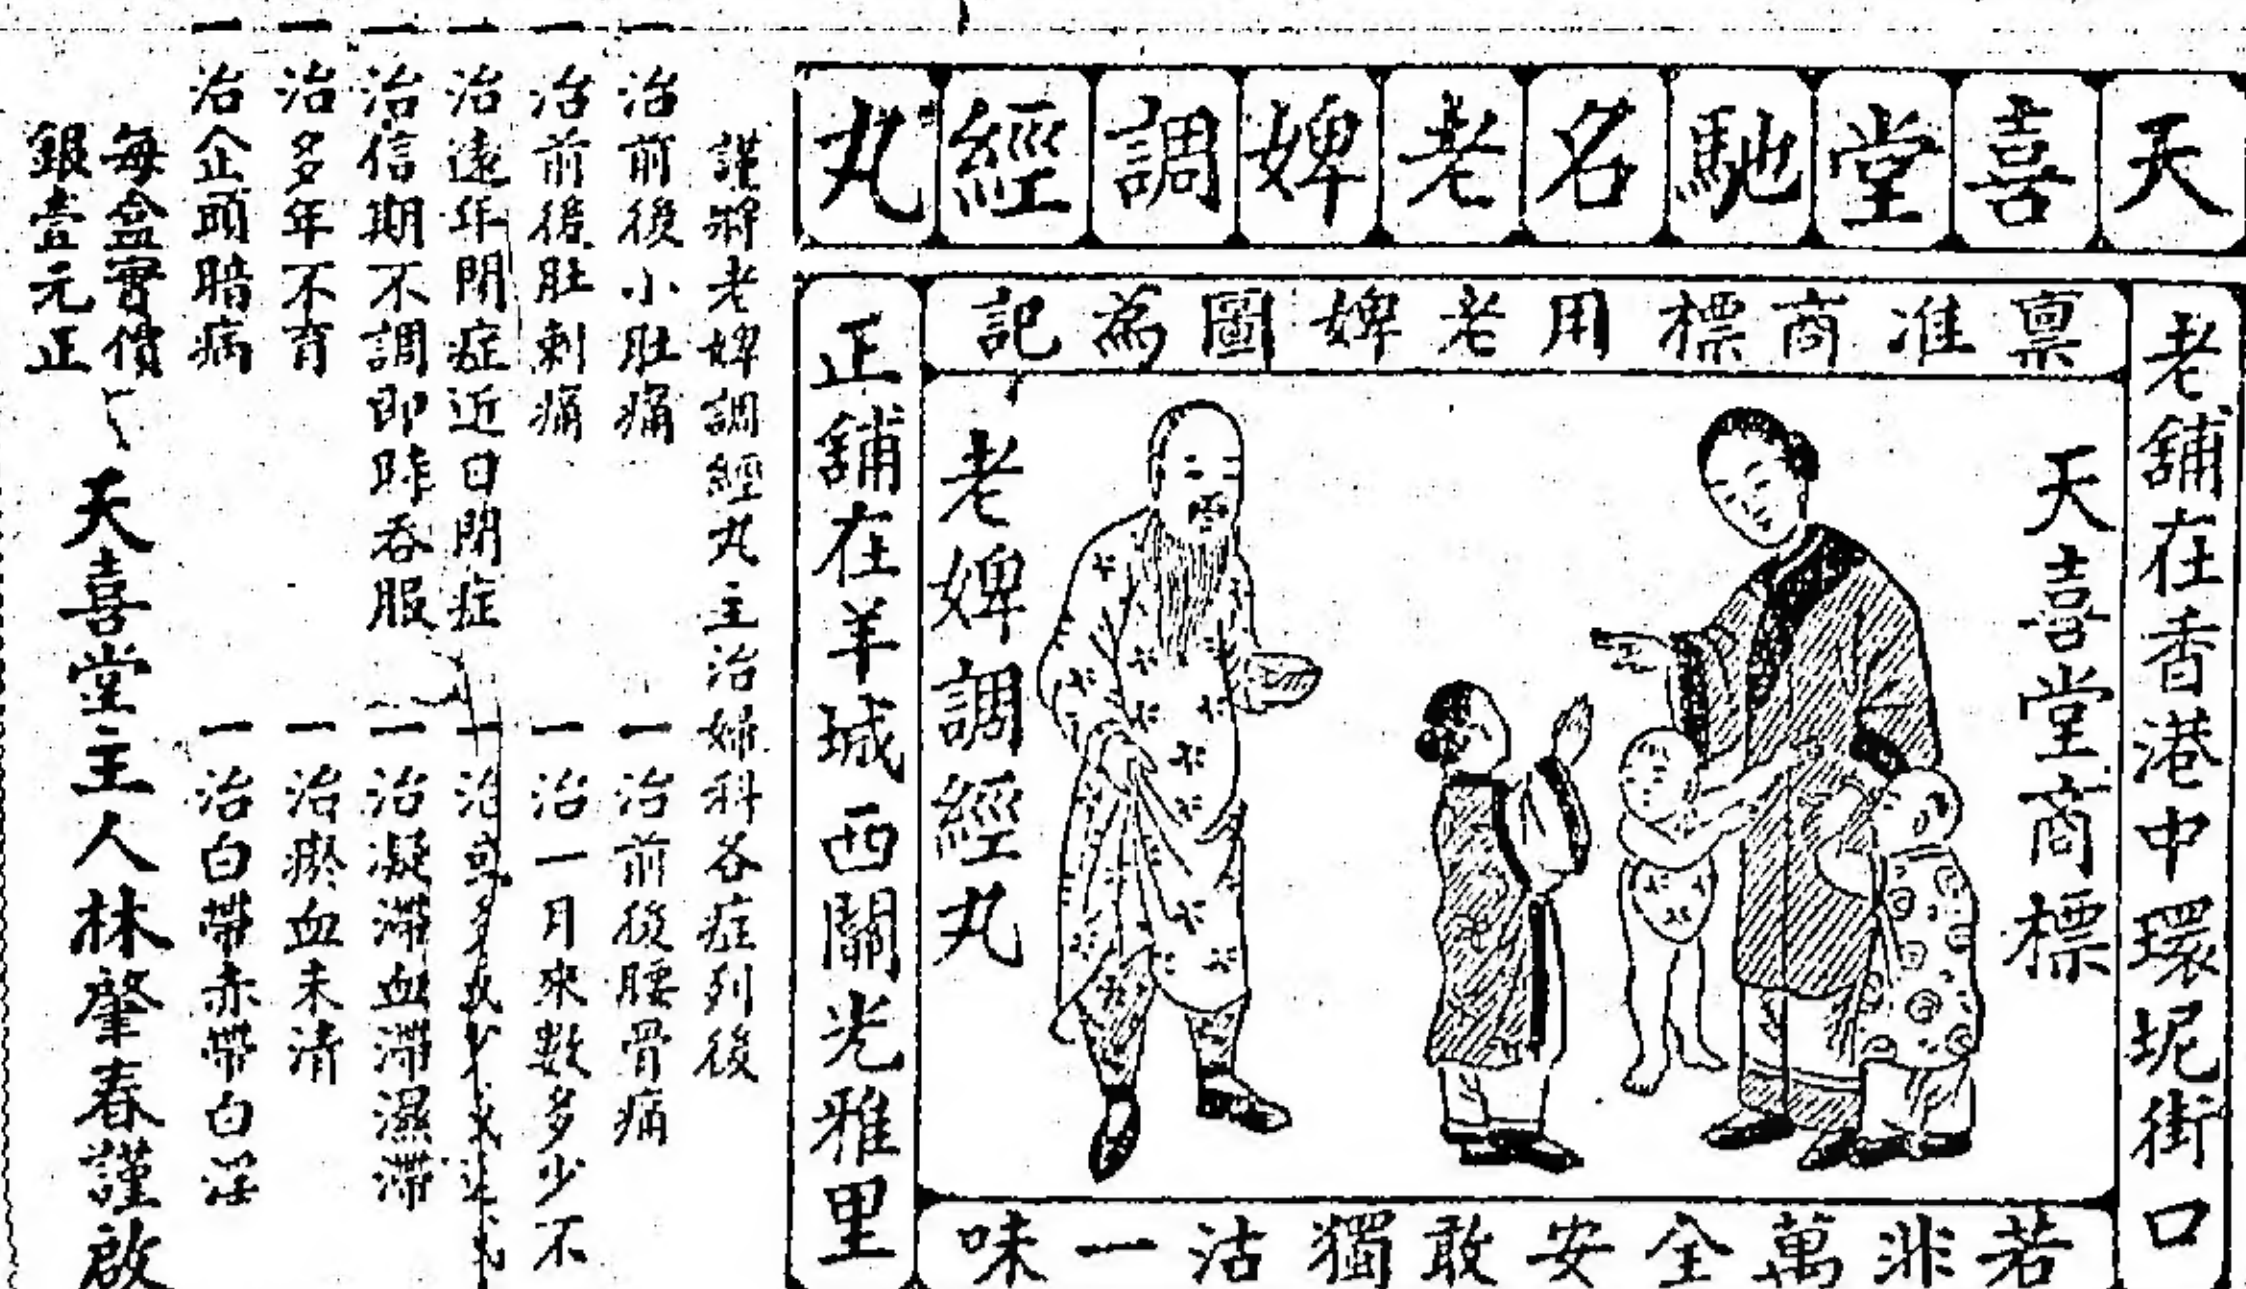 天喜堂馳名老婢調經丸
老舖在香港中環坭街口
稟准商標用老婢圖為記
天喜堂商標
老婢調經丸
若非萬全安敢獨沽一味
正舖在羊城西關光雅里
謹將老婢調經丸主治婦科各症列後
一治前後小肚痛
一治前後腰骨痛
一治前後肚刺痛
一治一月來數多少不
一治遠年閉症近日閉症
一治或多或少或
一治信期不調即時吞服
一治凝滯血滯濕滯
一治多年不育
一治瘀血未清
一治企頭暗病
一治白帶赤帶白淫
每盒實價
銀壹元正
天喜堂主人林肇春謹啟